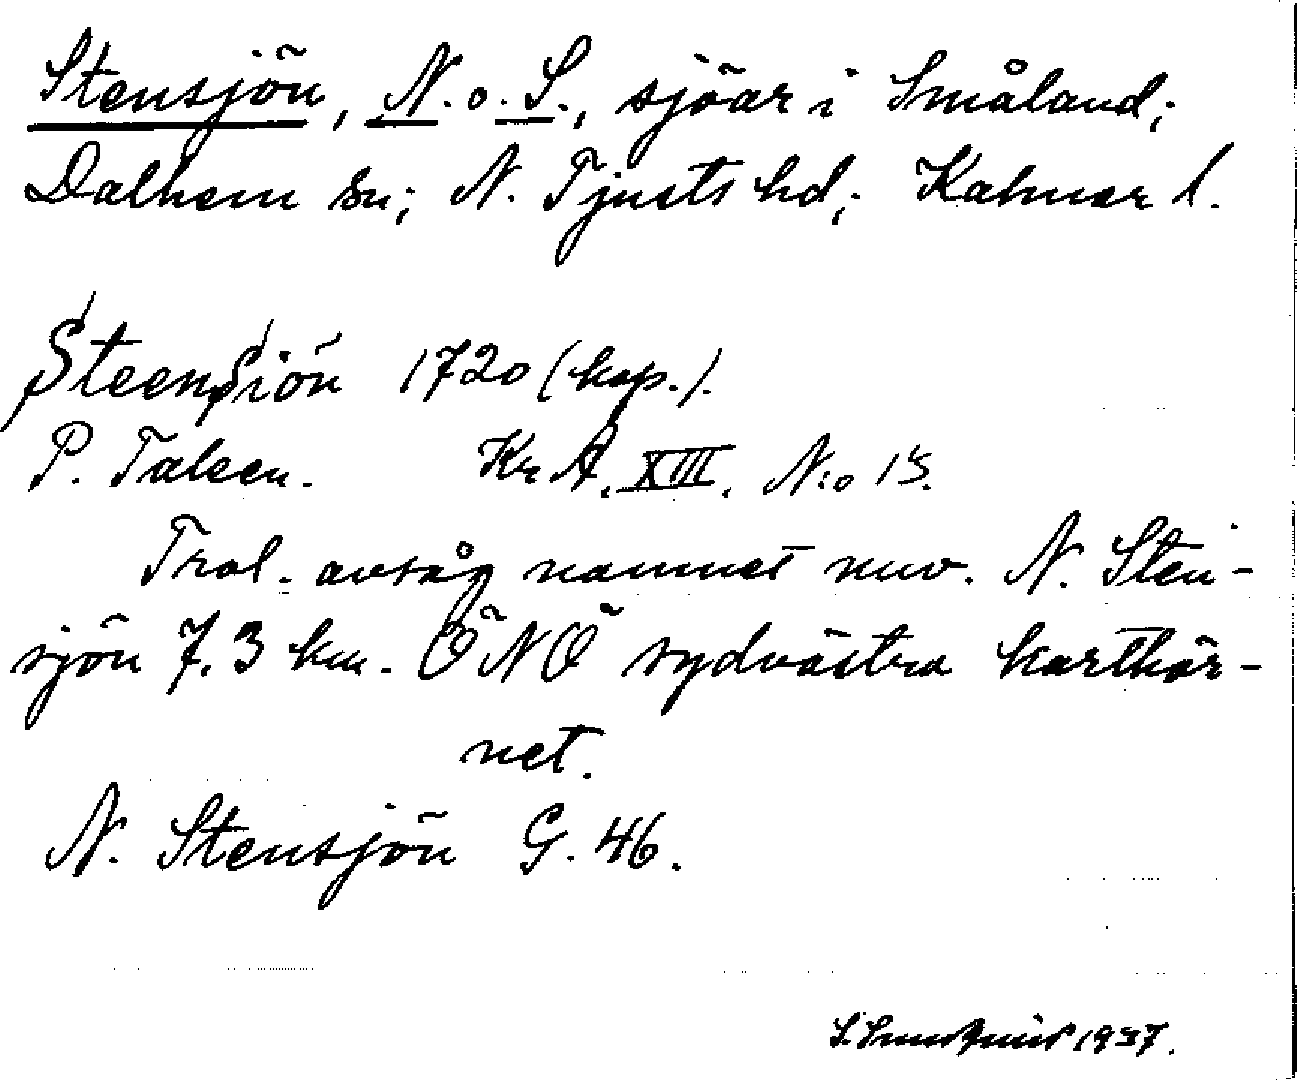 Stensjön, N. o. S., sjöar i Småland;
Dalhem sn; N. Tjusts hd; Kalmar l.
SteenSiön 1720 (kop.).
P. Talsen. KrA. XIII. N:o 15.
Trol. avsåg namnet nuv. N. Sten-
sjön 7.3 km. ÖNÖ sydvästra karthör-
net.
N. Stensjön G. 46.
S. 1937.